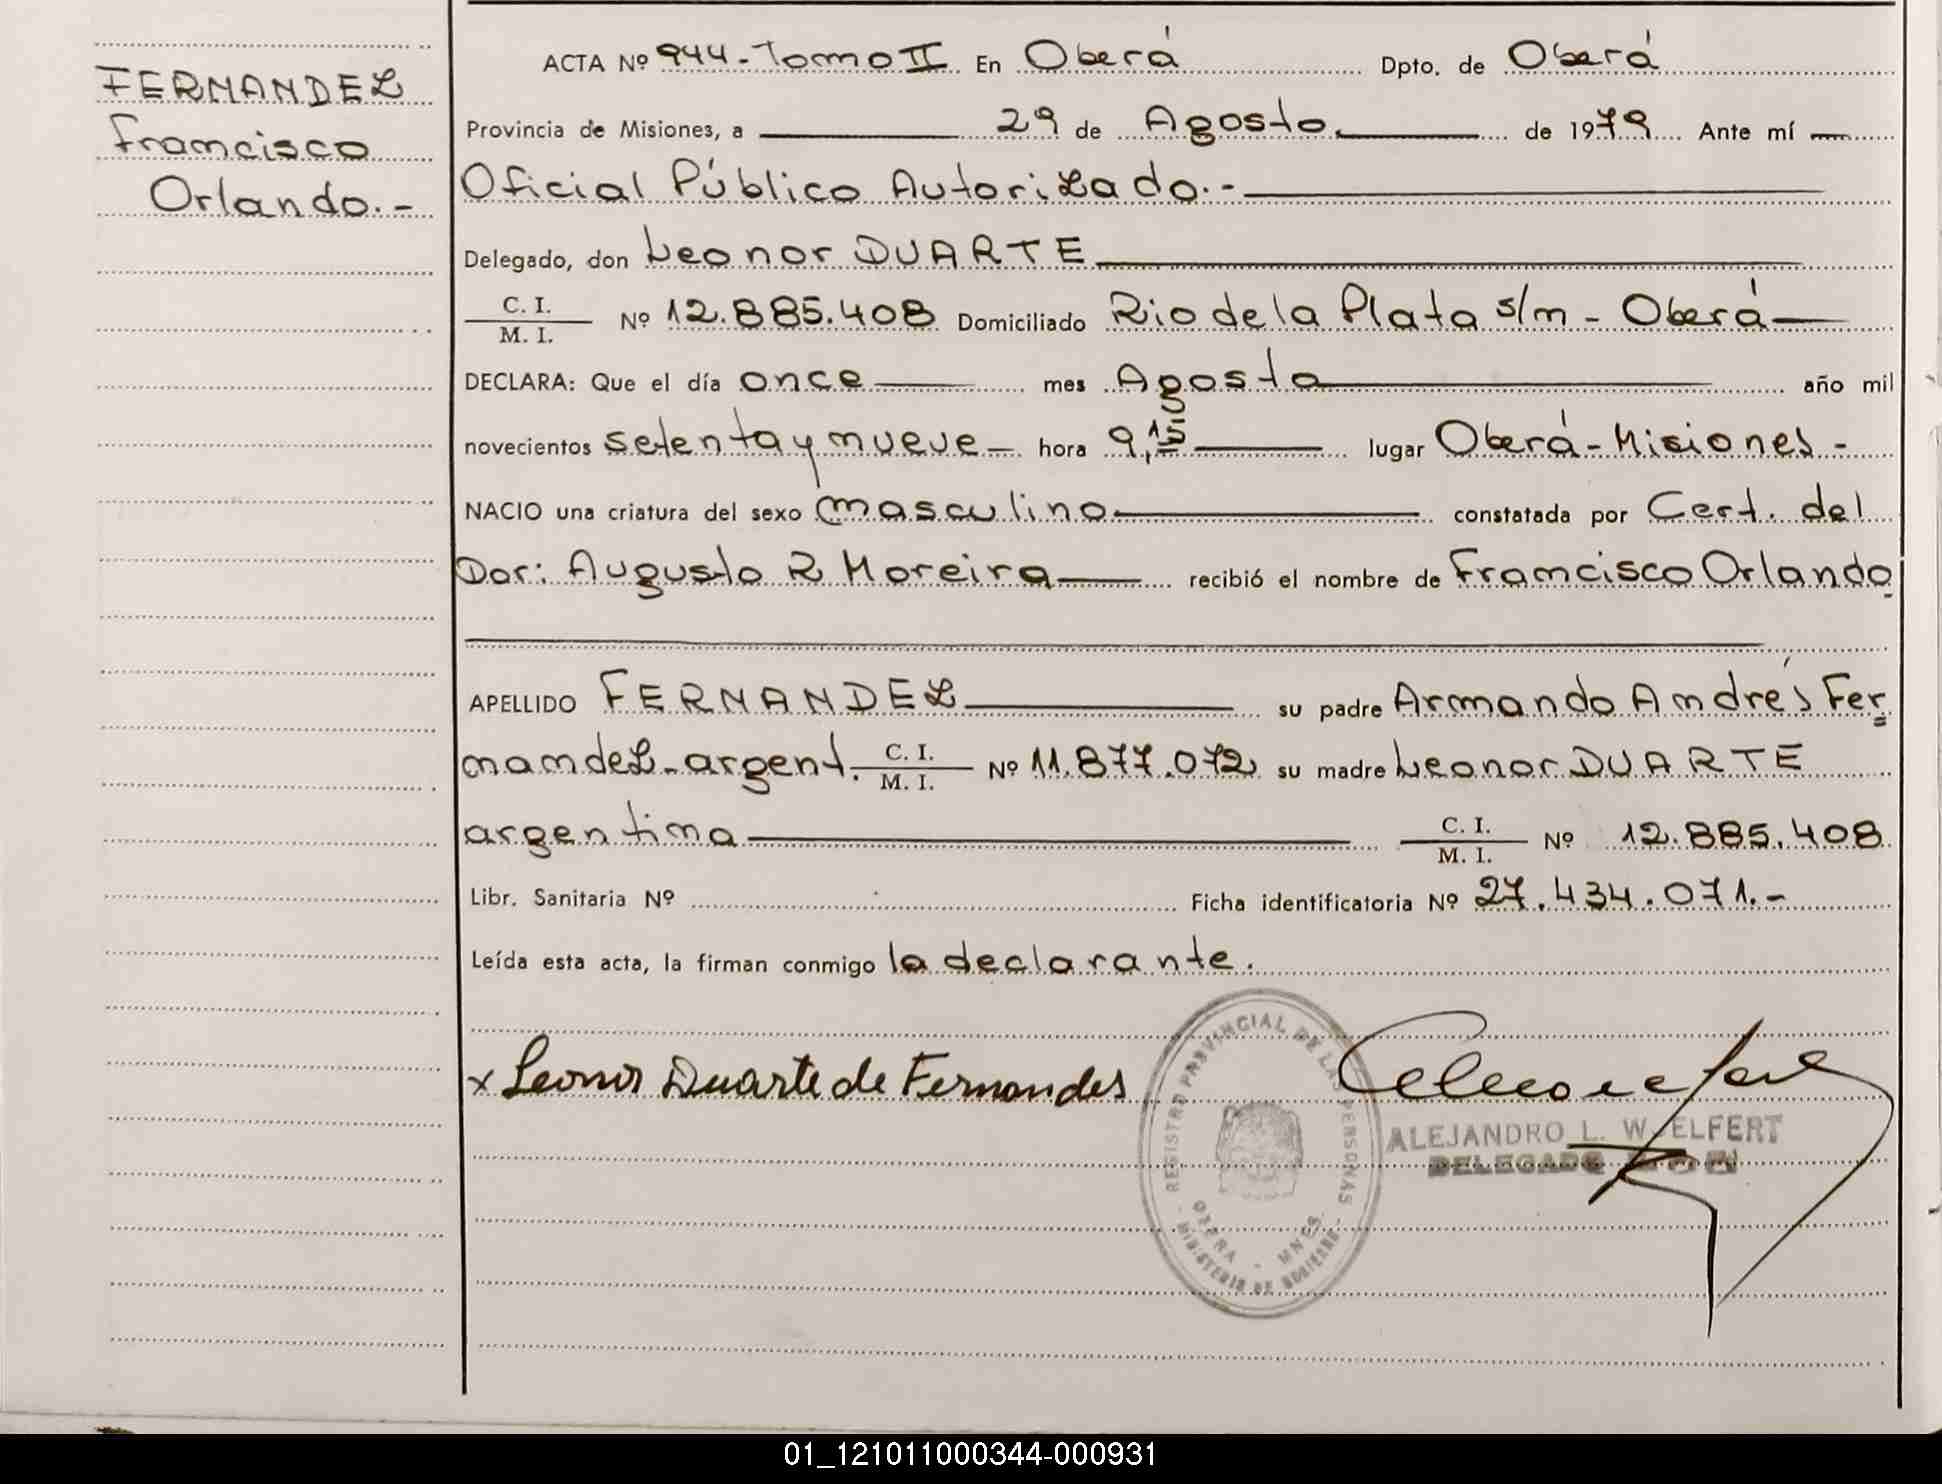 FERNANDEZ
Francisco
Orlando.-
ACTA Nº 944-Tomo II En Oberá Dpto. de Oberá
Provincia de Misiones, a 29 de Agosto de 1979 Ante mí
Oficial Público Autorizado.-
Delegado, don Leonor DUARTE
C. I.
M. I. Nº 12.885.408 Domiciliado Rio de la Plata s/n - Oberá
DECLARA: Que el día once mes Agosto año mil
novecientos setenta y nueve hora 9,15 lugar Oberá-Misiones-
NACIO una criatura del sexo masculino constatada por Cert. del
Dor: Augusto R Moreira recibió el nombre de Francisco Orlando
APELLIDO FERNANDEZ su padre Armando Andrés Fer
nandez-argent. C. I.
M. I. Nº 11.877.072 su madre Leonor DUARTE
argentina C. I.
M. I. Nº 12.885.408
Libr. Sanitaria Nº Ficha identificatoria Nº 27.434.071.-
Leída esta acta, la firman conmigo la declarante.
x Leonor Duarte de Fernandes
REGISTRO PROVINCIAL DE LAS PERSONAS
OBERA - MNES.
- MINISTERIO DE GOBIERNO -
ALEJANDRO L. W. ELFERT
DELEGADO
01_121011000344-000931